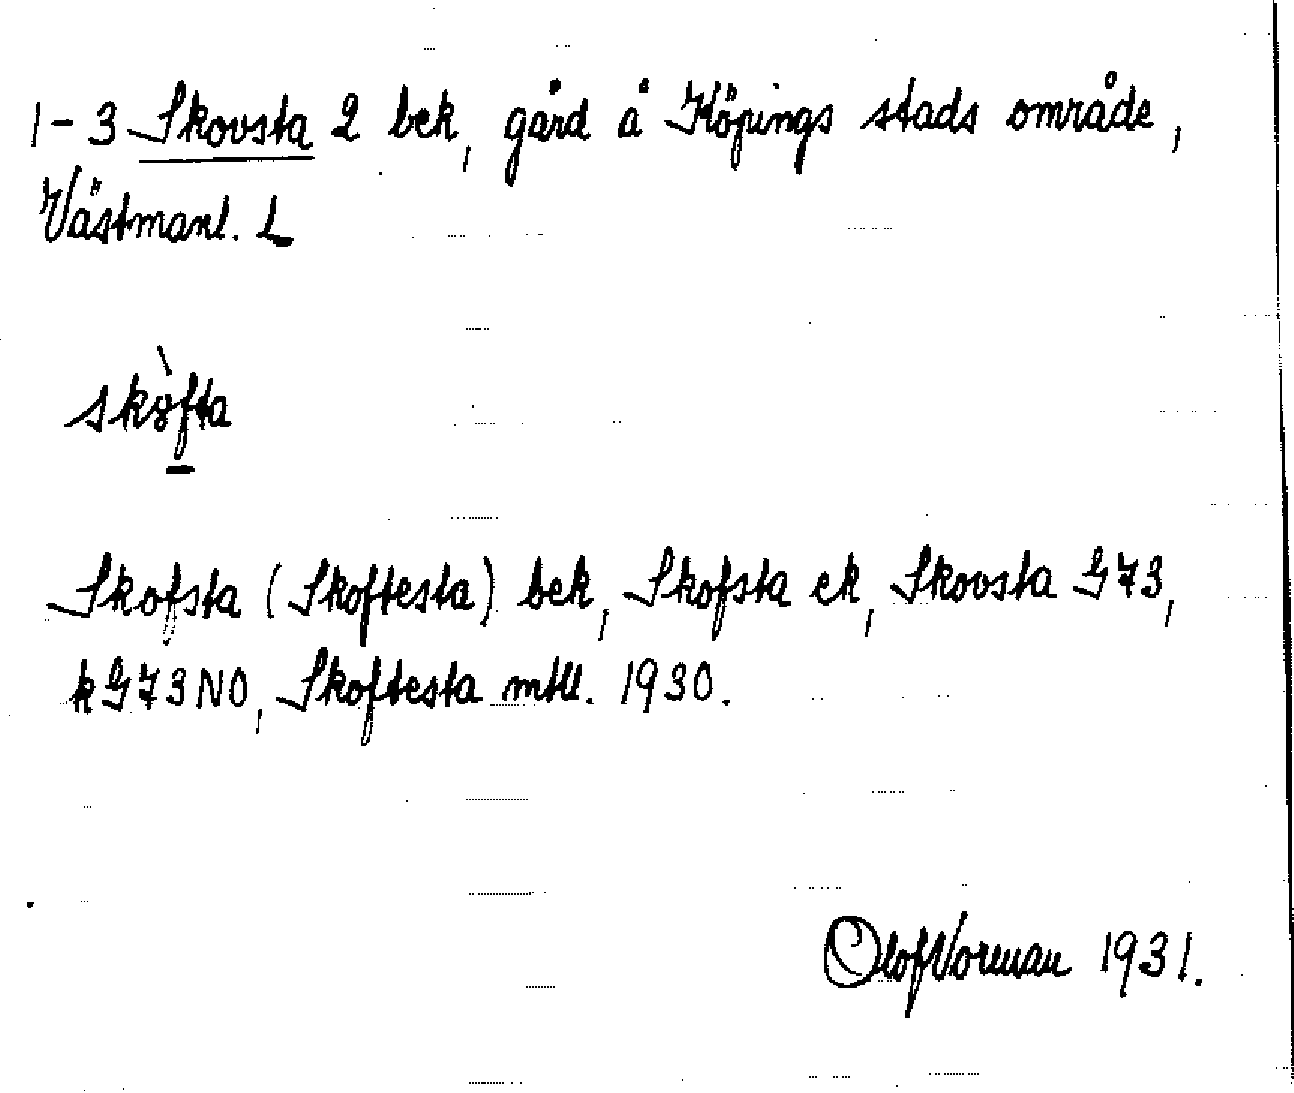 1-3 Skovsta 2 bek, gård å Köpings stads område,
Västmanl. L
skòfta
Skofsta (Skoftesta) bek, Skofsta ek, Skovsta G73,
kG73NO, Skoftesta mtll. 1930.
Olof Norman 1931.